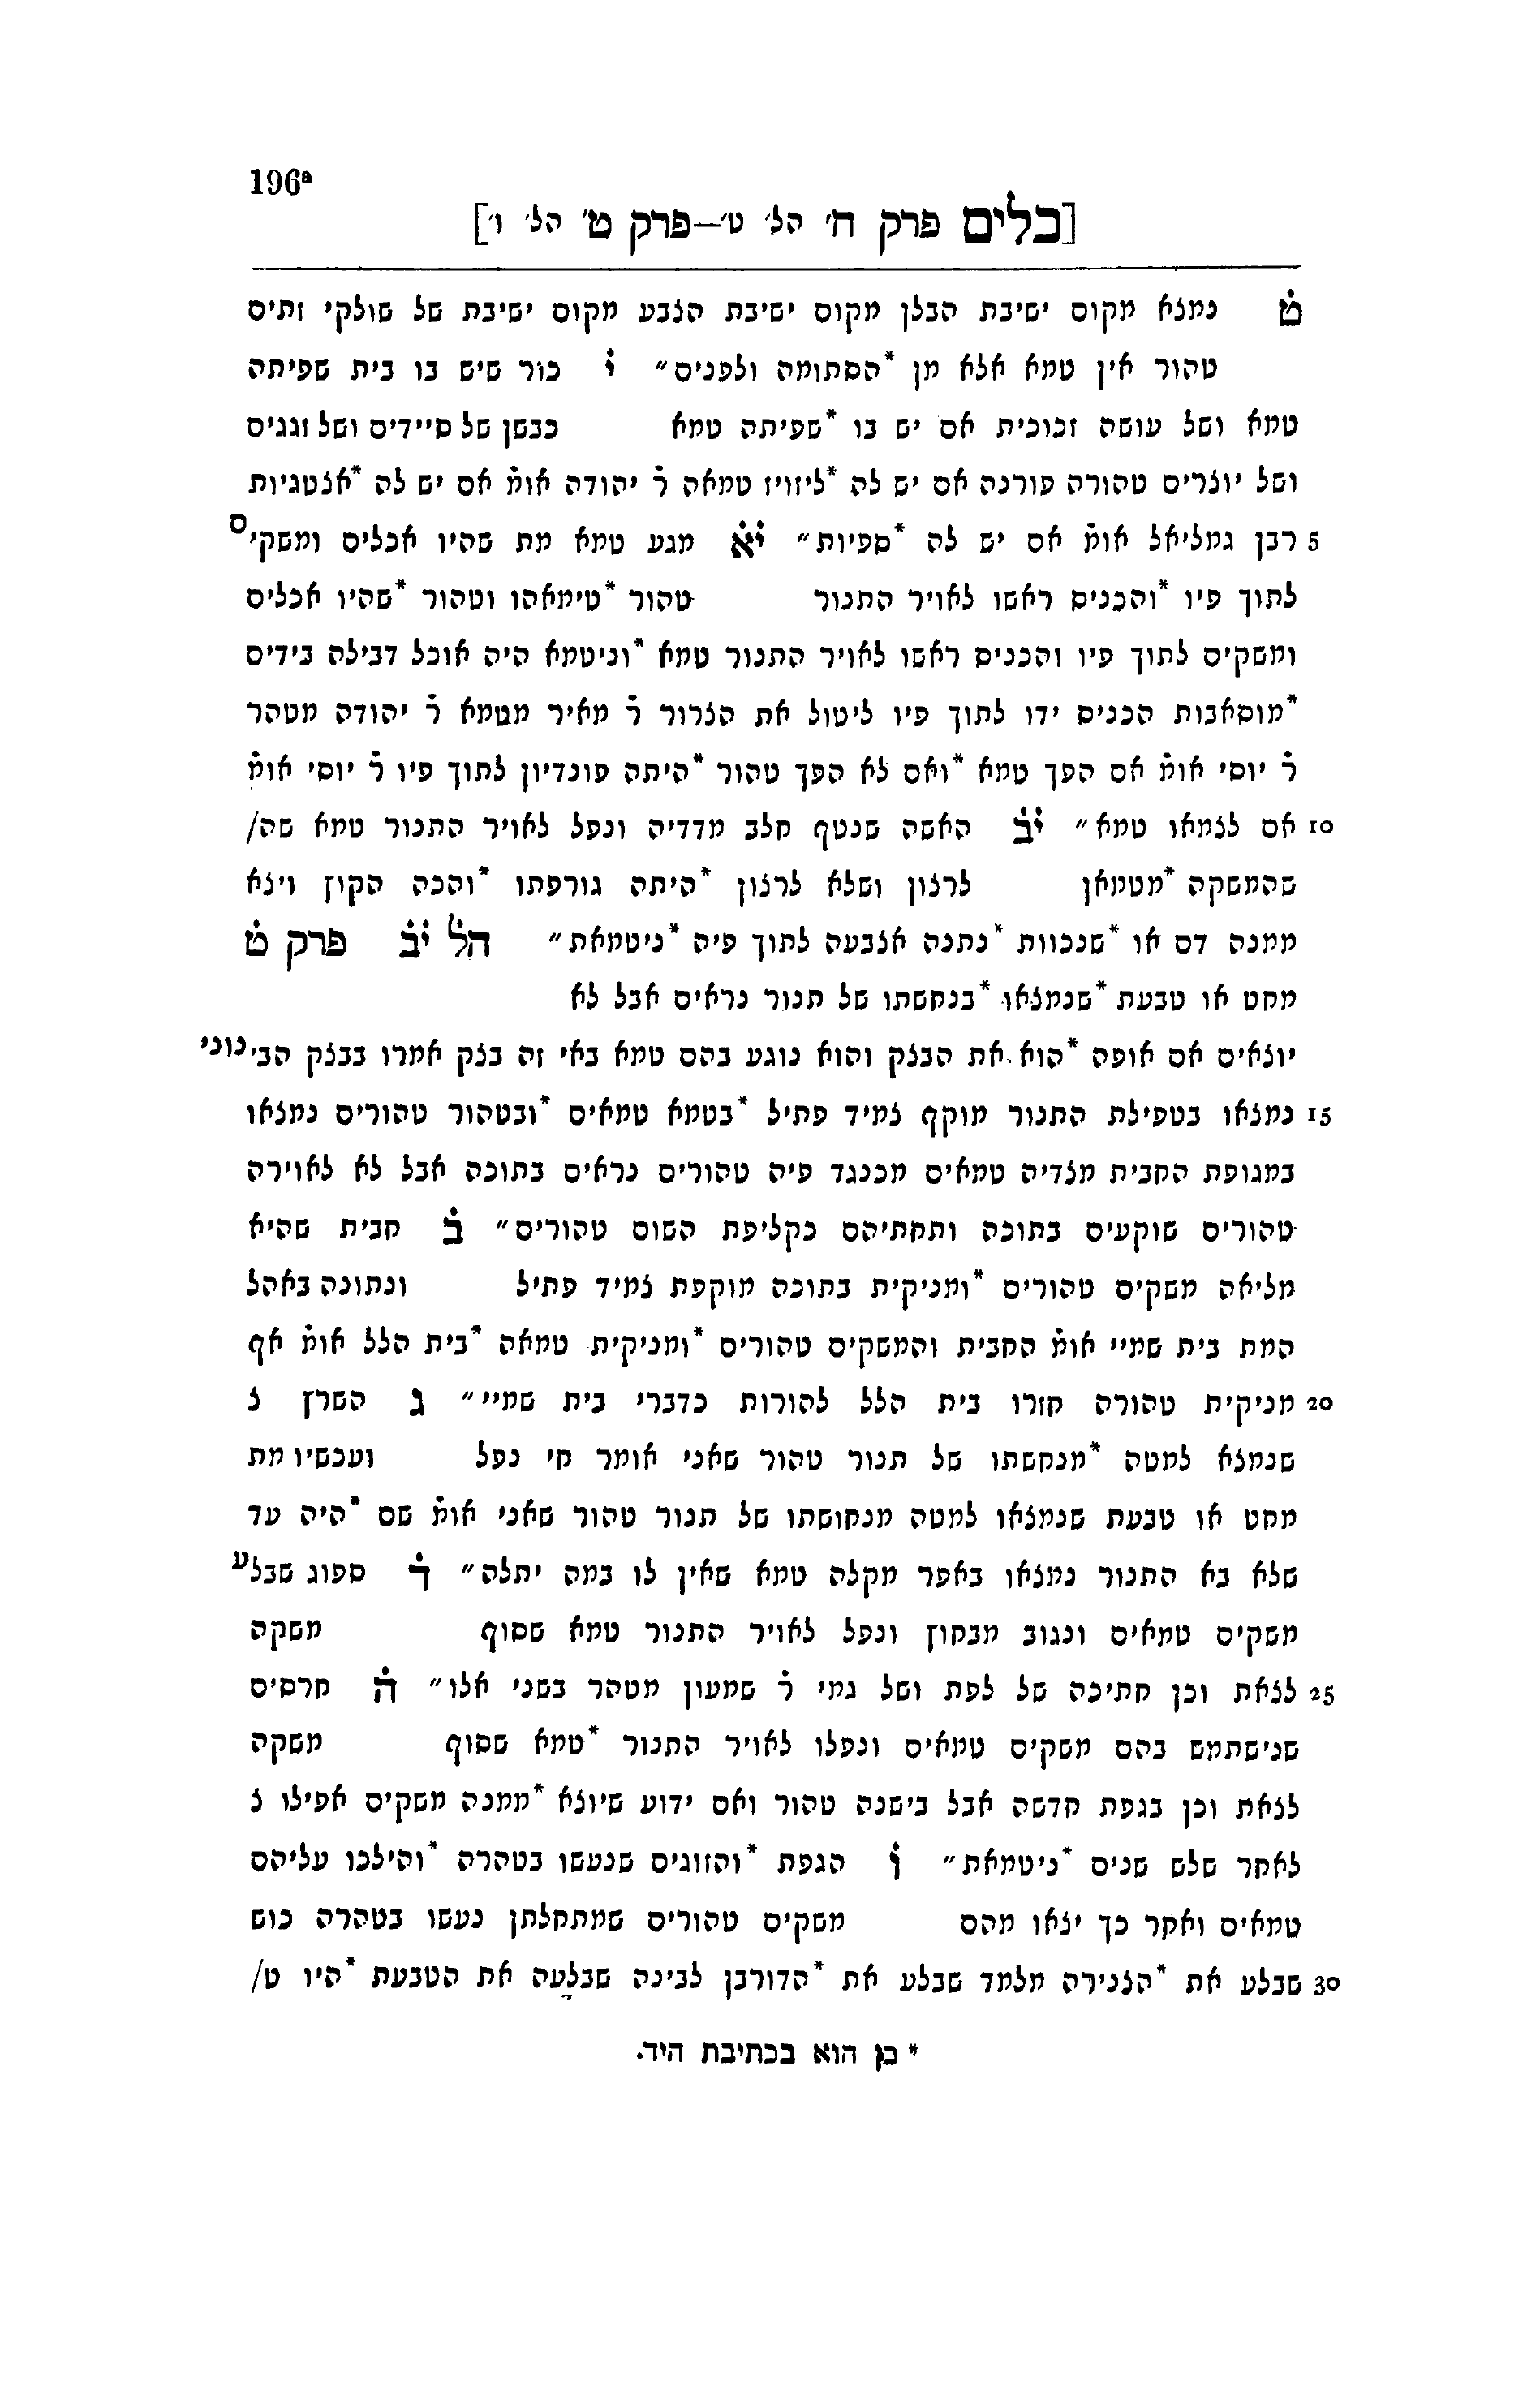 196ª
[כלים פרק ח' הל' ט'—פרק ט' הל' ו']
ט̇ נמצא מקום ישיבת הבלן מקום ישיבת הצבע מקום ישיבת של שולקי זתים
טהור אין טמא אלא מן *הסתומה ולפנים״ י̇ כור שיש בו בית שפיתה
טמא ושל עושה זכוכית אם יש בו *שפיתה טמא כבשן של סיידים ושל זגגים
ושל יוצרים טהורה פורנה אם יש לה *ליזויז טמאה ר̇ יהודה אומ̇ אם יש לה *אצטגיות
5 רבן גמליאל אומ̇ אם יש לה *ספיות״ י̇א̇ מגע טמא מת שהיו אכלים ומשקים
לתוך פיו *והכניס ראשו לאויר התנור טהור *טימאהו וטהור *שהיו אכלים
ומשקים לתוך פיו והכניס ראשו לאויר התנור טמא *וניטמא היה אוכל דבילה בידים
*מוסאבות הכניס ידו לתוך פיו ליטול את הצרור ר̇ מאיר מטמא ר̇ יהודה מטהר
ר̇ יוסי אומ̇ אם הפך טמא *ואם לא הפך טהור *היתה פונדיון לתוך פיו ר̇ יוסי אומ̇
10 אם לצמאו טמא״ י̇ב̇ האשה שנטף חלב מדדיה ונפל לאויר התנור טמא שה/
שהמשקה *מטמאן לרצון ושלא לרצון *היתה גורפתו *והכה הקוץ ויצא
ממנה דם או *שנכוות *נתנה אצבעה לתוך פיה *ניטמאת״ הל̇ י̇ב̇ פרק ט̇
מחט או טבעת *שנמצאו *בנחשתו של תנור נראים אבל לא
יוצאים אם אופה *הוא את הבצק והוא נוגע בהם טמא באי זה בצק אמרו בבצק הבינוני
15 נמצאו בטפילת התנור מוקף צמיד פתיל *בטמא טמאים *ובטהור טהורים נמצאו
במגופת החבית מצדיה טמאים מכנגד פיה טהורים נראים בתוכה אבל לא לאוירה
טהורים שוקעים בתוכה ותחתיהם כקליפת השום טהורים״ ב̇ חבית שהיא
מליאה משקים טהורים *ומניקית בתוכה מוקפת צמיד פתיל ונתונה באהל
המת בית שמיי אומ̇ החבית והמשקים טהורים *ומניקית טמאה *בית הלל אומ̇ אף
20 מניקית טהורה חזרו בית הלל להורות כדברי בית שמיי״ ג̇ השרץ נ
שנמצא למטה *מנחשתו של תנור טהור שאני אומר חי נפל ועכשיו מת
מחט או טבעת שנמצאו למטה מנחושתו של תנור טהור שאני אומ̇ שם *היה עד
שלא בא התנור נמצאו באפר מקלה טמא שאין לו במה יתלה״ ד̇ ספוג שבלע
משקים טמאים ונגוב מבחוץ ונפל לאויר התנור טמא שסוף משקה
25 לצאת וכן חתיכה של לפת ושל גמי ר̇ שמעון מטהר בשני אלו״ ה̇ חרסים
שנישתמש בהם משקים טמאים ונפלו לאויר התנור *טמא שסוף משקה
לצאת וכן בגפת חדשה אבל בישנה טהור ואם ידוע שיוצא *ממנה משקים אפילו נ
לאחר שלש שנים *ניטמאת״ ו̇ הגפת *והזוגים שנעשו בטהרה *והילכו עליהם
טמאים ואחר כך יצאו מהם משקים טהורים שמתחלתן נעשו בטהרה כוש
30 שבלע את *הצנירה מלמד שבלע את *הדורבן לבינה שבלעה את הטבעת *היו ט/
* כן הוא בכתיבת היד.